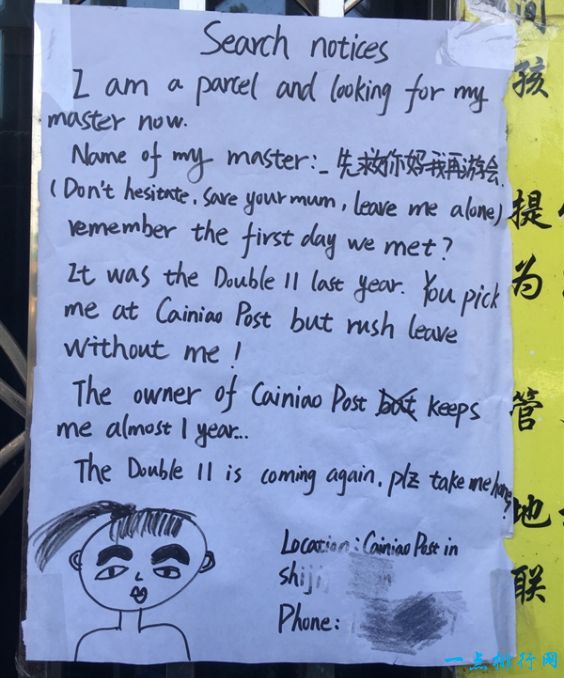 Search notices
I am a parcel and looking for my
master now.
Name of my master: 先救你妈我再游会.
(Don't hesitate, save your mum, leave me alone)
remember the first day we met?
It was the Double 11 last year. You pick
me at Cainiao Post but rush leave
without me!
The owner of Cainiao Post but keeps
me almost 1 year...
The Double 11 is coming again. plz take me home?
Location: Cainiao Post in
shiji
Phone:
间
孩
提
为
管
地
联
一点排行网